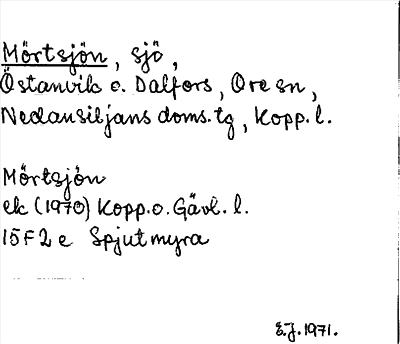 Mörtsjön, sjö,
Östanvik o. Dalfors, Ore sn,
Nedansiljans doms.tg, Kopp. l.
Mörtsjön
ek (1970) Kopp. o. Gävl. l.
15F2e Spjutmyra
E.J. 1971.